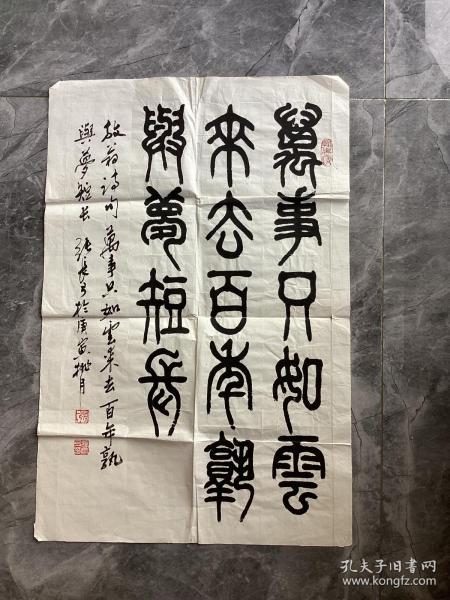 萬事只如雲
來去百年孰
與夢短長
放翁诗句萬事只如雲来去百年孰
與夢短长 張長弓於庚寅桃月
孔夫子旧书网
www.kongfz.com